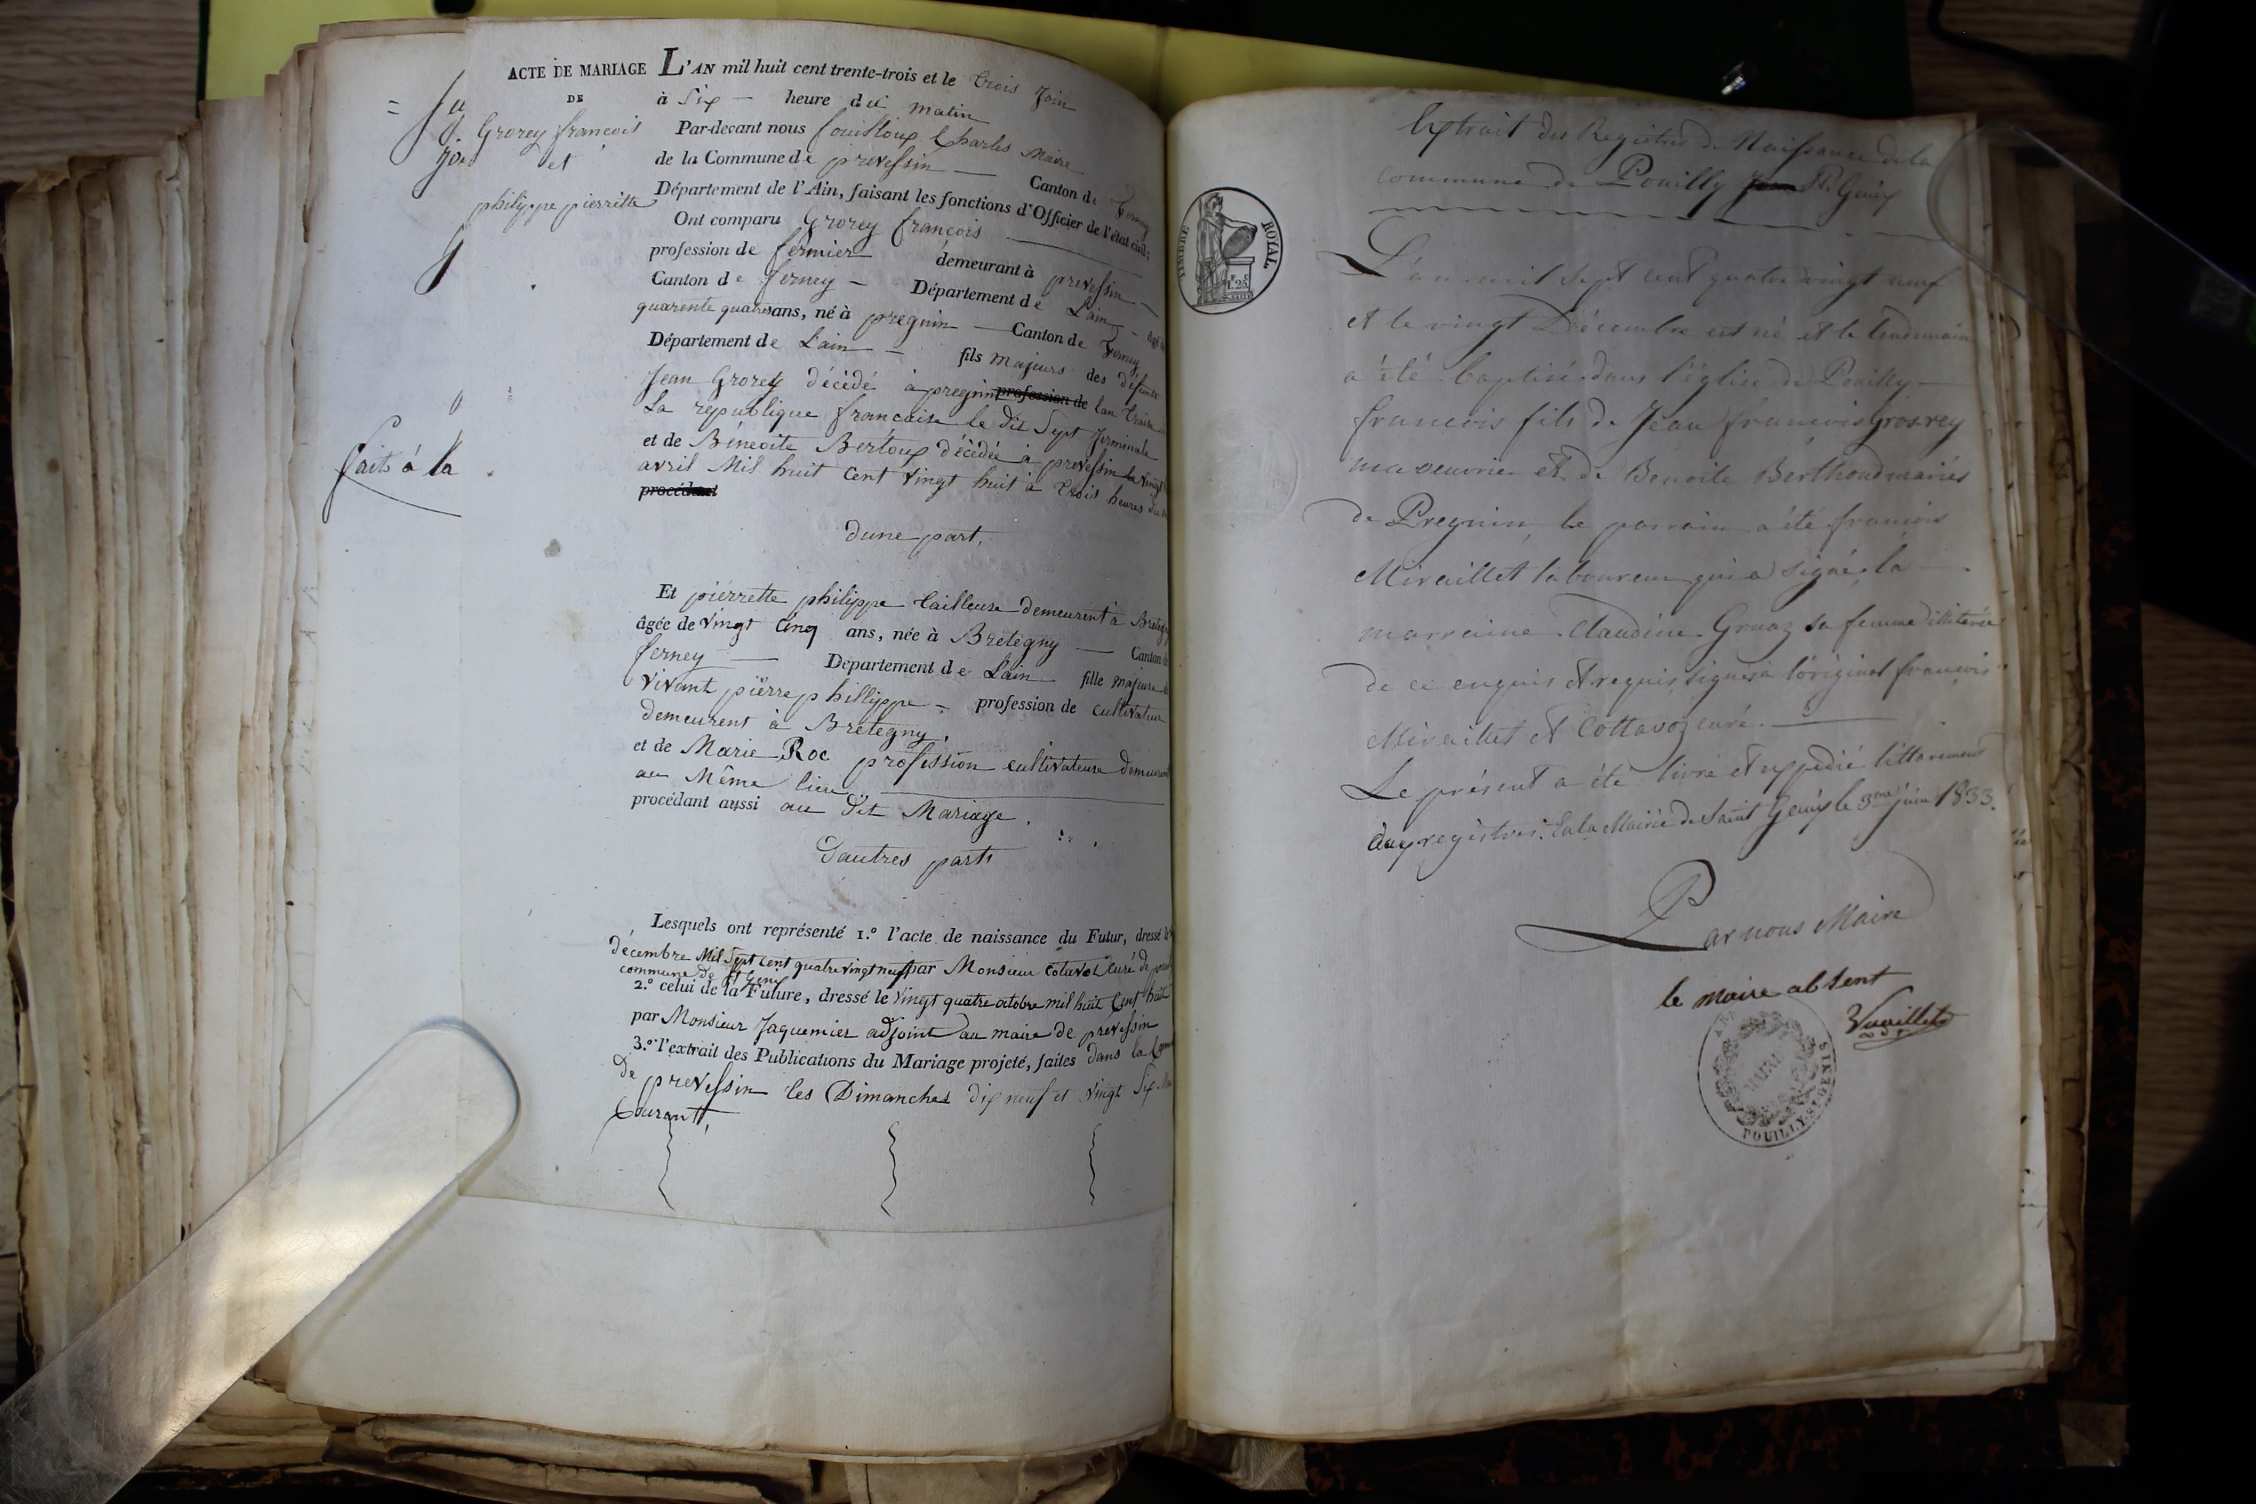 ACTE DE MARIAGE
DE
Grorey françois
et
philippe pierrette
faits à la
L'AN mil huit cent trente-trois et le trois Join
à Six — heure du matin
Par-devant nous fouilloux Charles Maire
de la Commune de prevessin — Canton de Ferney
Département de l'Ain, faisant les fonctions d'Officier de l'état civil;
Ont comparu Grorey françois
profession de fermier demeurant à prevessin
Canton de ferney — Département de L'ain — âgé de
quarente quatre ans, né à pregnin — Canton de Ferney
Département de L'ain — fils majeurs des défunts
Jean Grorey décédé à pregnin profession de lan treize
La republique francaise le dit Sept Jerminale
et de Béneoite Bertoux décédée à prevessin le vingt
avril Mil huit Cent Vingt huit à trois heures du
procédant
dune part,
Et piérrette philippe tailleuse demeurent à Bretegny
âgée de vingt Cinq ans, née à Brétegny — Canton de
ferney — Département de L'ain fille majeure de
vivant piérre phillippe - profession de cultivateur
demeurent à Brétegny.
et de Marie Roc profession cultivateuse demeurent
au Même lieu
procédant aussi au dit Mariage.
d'autres parts
Lesquels ont représenté 1.º l'acte de naissance du Futur, dressé le
décembre Mil Sept cent quatre vingt neuf par Monsieur Cotavot Curé de
commune de St Genix
2.º celui de la Future, dressé le vingt quatre octobre mil huit Cent huit
par Monsieur Jaquemier adjoint au maire de prévessin
3.º l'extrait des Publications du Mariage projeté, faites dans la
de prevessin les Dimanches dix neuf et vingt Six
Courant,
TIMBRE ROYAL
Extrait des Registres de Naissance de la
commune de Pouilly St. Genix
L'an mil sept cent quatre vingt neuf
et le vingt Décembre est né et le lendemain
a été baptisé dans l'église de Pouilly —
francois fils de Jean françois Grosrey
manoeuvrier et de Benoite Berthoud mariés
de Pregnin, le parrain a été françois
Miraillet laboureur qui a signé, la —
marraine Claudine Gruaz sa femme illiterée
de ce enquis et requis, signés à l'original françois
Miraillet et Cottavoz curé. —
Le présent a été livré et expédié littérament
aux registres. En la Mairie de Saint Genix le 3me juin 1833.
Par nous Maire
le maire absent
Vuaillet
POUILLY-ST-GENIS